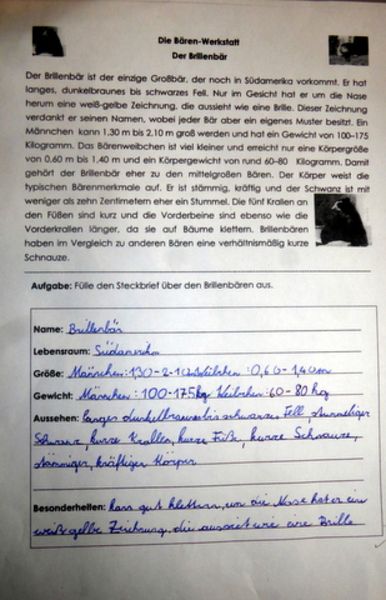 Die Bären-Werkstatt
Der Brillenbär
Der Brillenbär ist der einzige Großbär, der noch in Südamerika vorkommt. Er hat
langes, dunkelbraunes bis schwarzes Fell. Nur im Gesicht hat er um die Nase
herum eine weiß-gelbe Zeichnung, die aussieht wie eine Brille. Dieser Zeichnung
verdankt er seinen Namen, wobei jeder Bär aber ein eigenes Muster besitzt. Ein
Männchen kann 1,30 m bis 2,10 m groß werden und hat ein Gewicht von 100–175
Kilogramm. Das Bärenweibchen ist viel kleiner und erreicht nur eine Körpergröße
von 0,60 m bis 1,40 m und ein Körpergewicht von rund 60–80 Kilogramm. Damit
gehört der Brillenbär eher zu den mittelgroßen Bären. Der Körper weist die
typischen Bärenmerkmale auf. Er ist stämmig, kräftig und der Schwanz ist mit
weniger als zehn Zentimetern eher ein Stummel. Die fünf Krallen an
den Füßen sind kurz und die Vorderbeine sind ebenso wie die
Vorderkrallen länger, da sie auf Bäume klettern. Brillenbären
haben im Vergleich zu anderen Bären eine verhältnismäßig kurze
Schnauze.
Aufgabe: Fülle den Steckbrief über den Brillenbären aus.
Name: Brillenbär
Lebensraum: Südamerika
Größe: Männchen: 1,30 - 2,10 Weibchen: 0,60 - 1,40m
Gewicht: Männchen: 100-175kg Weibchen: 60-80 kg
Aussehen: langes dunkelbraunes bis schwarzes Fell, stummeliger
Schwanz, kurze Krallen, kurze Füße, kurze Schnauze,
stämmiger, kräftiger Körper
Besonderheiten: kann gut klettern, um die Nase hat er ein
weiß gelbe Zeichnung, die aussieht wie eine Brille